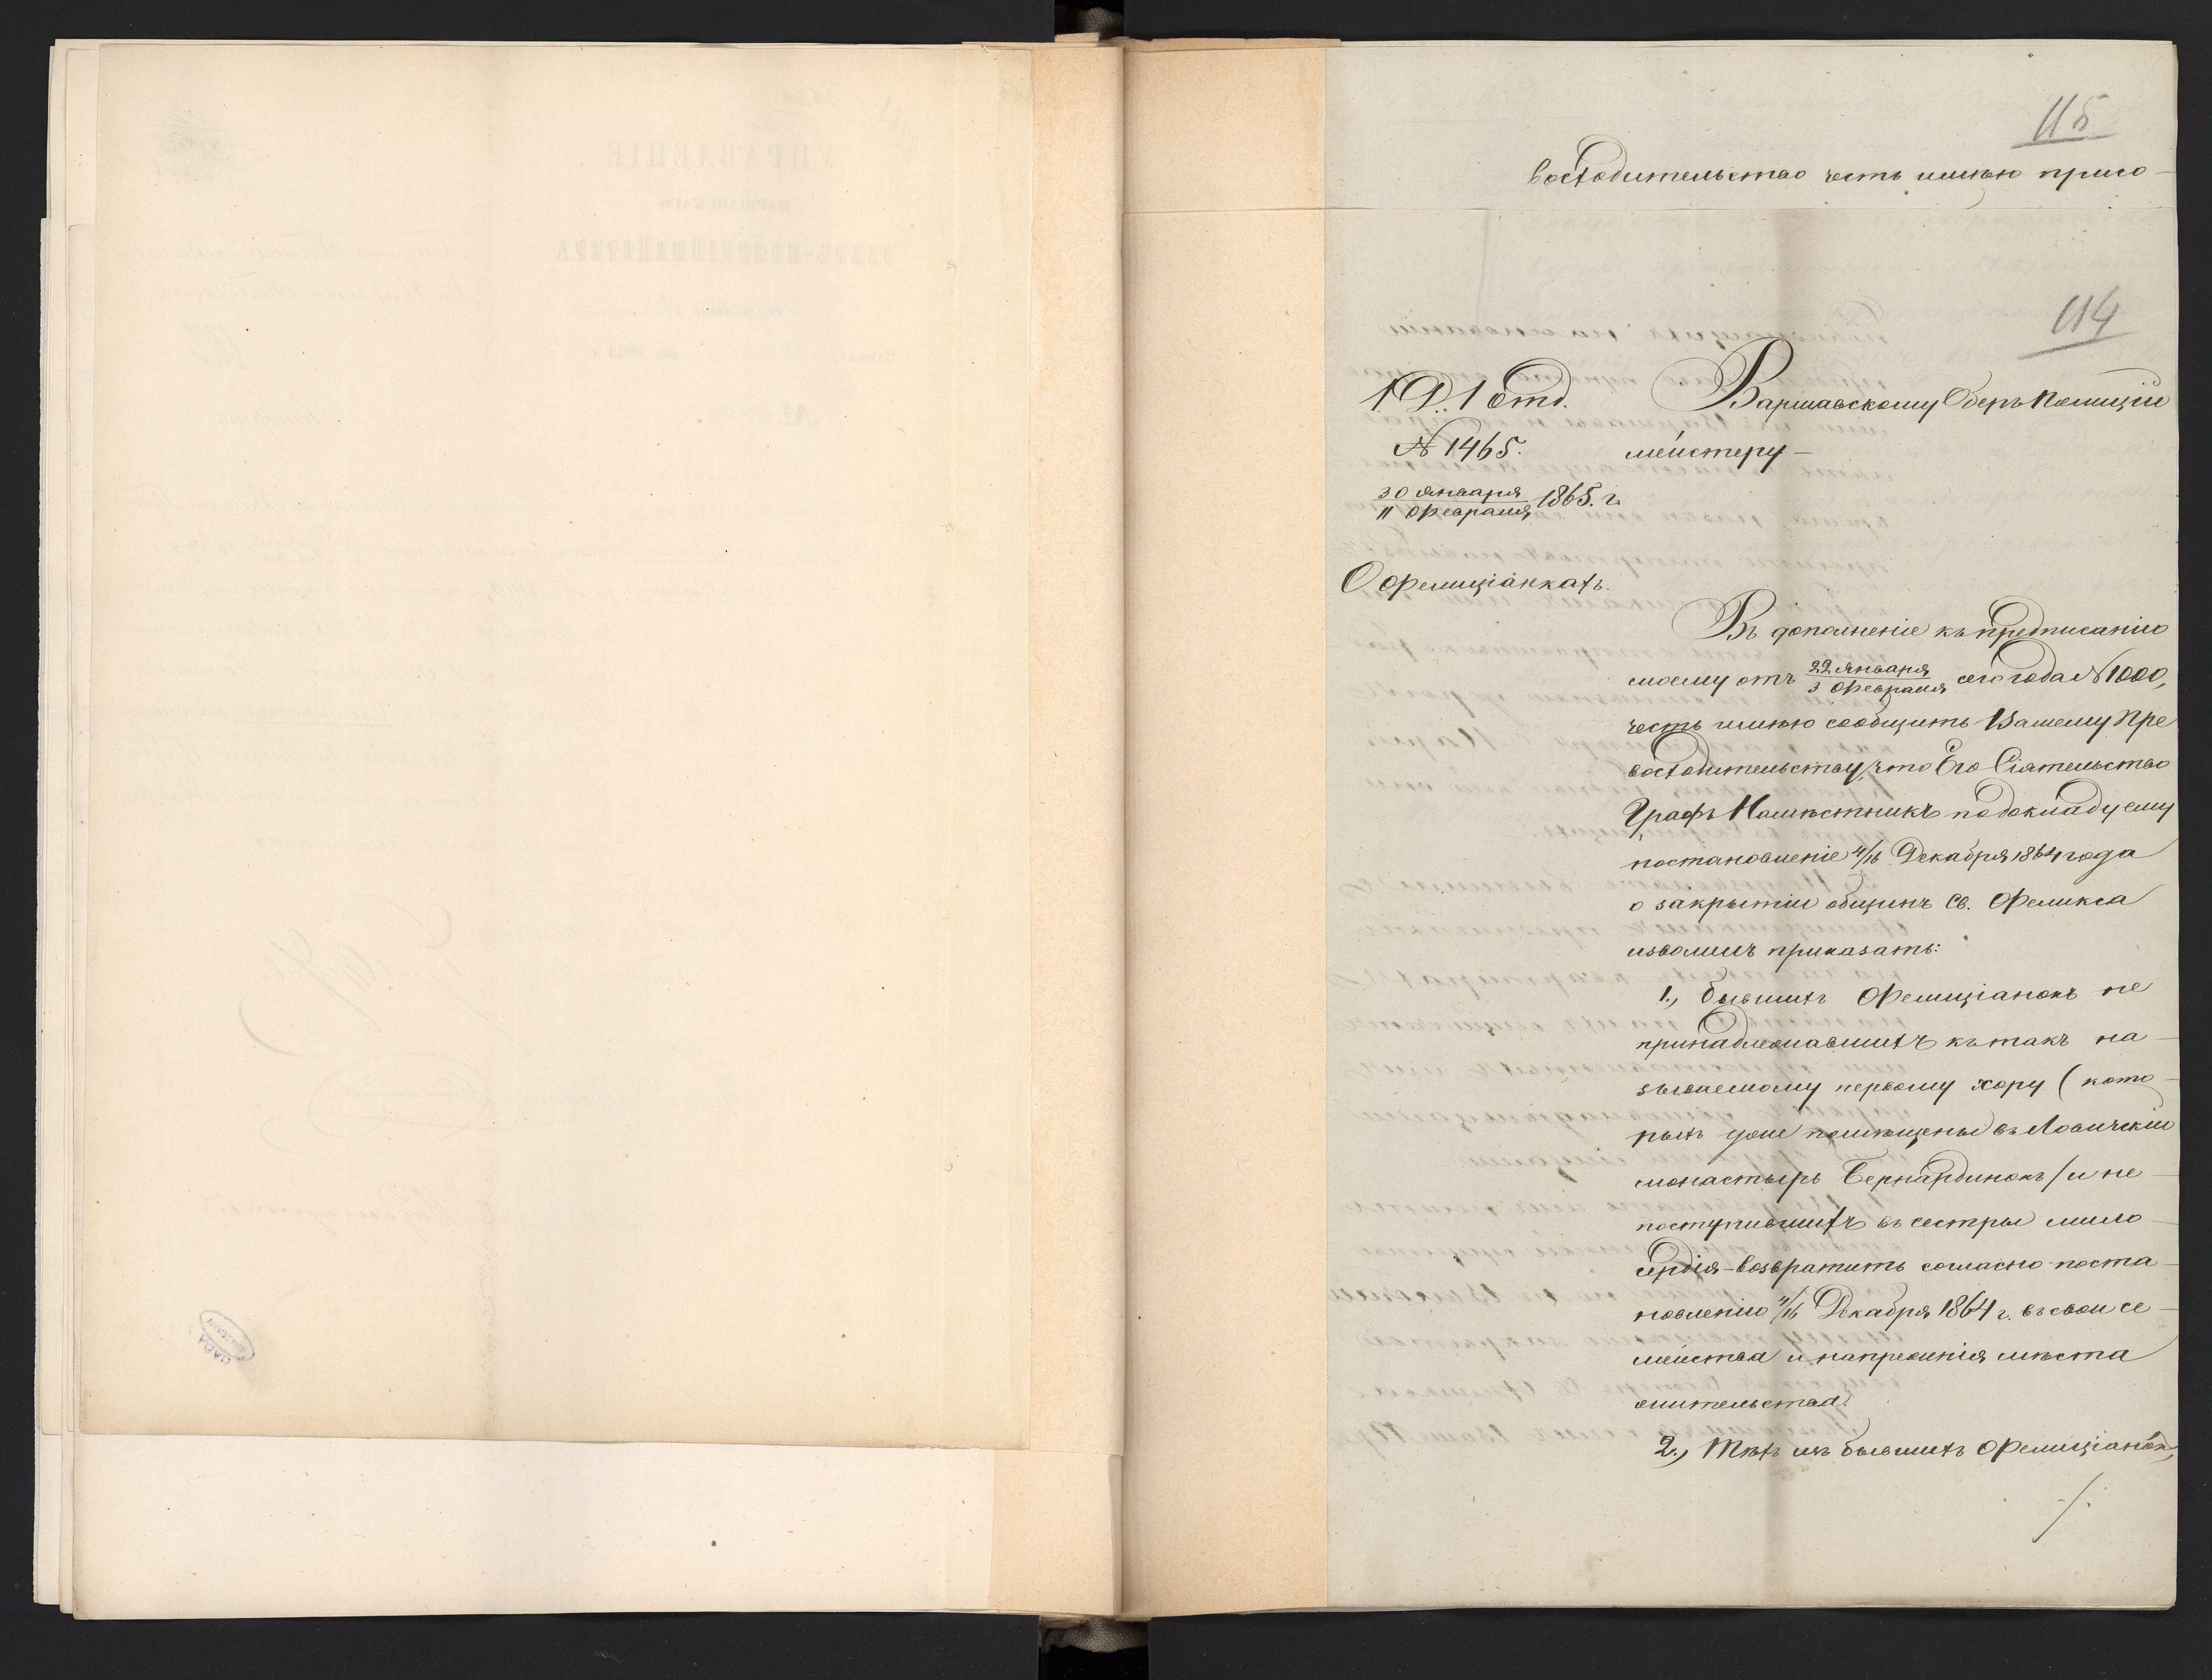 115
восходительство честь имѣю присо-
114
1 Д. 1 отд.
Варшавскому Оберъ Полиціи
мейстеру —
№ 1465.
30 Января / 11 Февраля 1865. г.
О Фелиціанкахъ.
Въ дополненіе къ предписанію
моему отъ 22 Января / 3 Февраля сего года № 1000,
честь имѣю сообщить Вашему Пре
восходительству, что Его Сіятельство
Графъ Намѣстникъ по докладу ему
постановленіе 4/16 Декабря 1864 года
о закрытіи общинъ Св. Феликса
изволилъ приказать:
1., бывшихъ Фелиціанокъ не
принадлежавшихъ къ такъ на-
зываемому первому хору (кото-
рыхъ уже помѣщены въ Ловичскій
монастырь Бернардинокъ/ и не
поступившихъ въ сестры мило-
сердія - возвратить согласно поста-
новленію 4/16 Декабря 1864 г. въ свои се-
мейства и на прежнія мѣста
жительства.
2., Тѣхъ изъ бывшихъ Фелиціанок,
./.